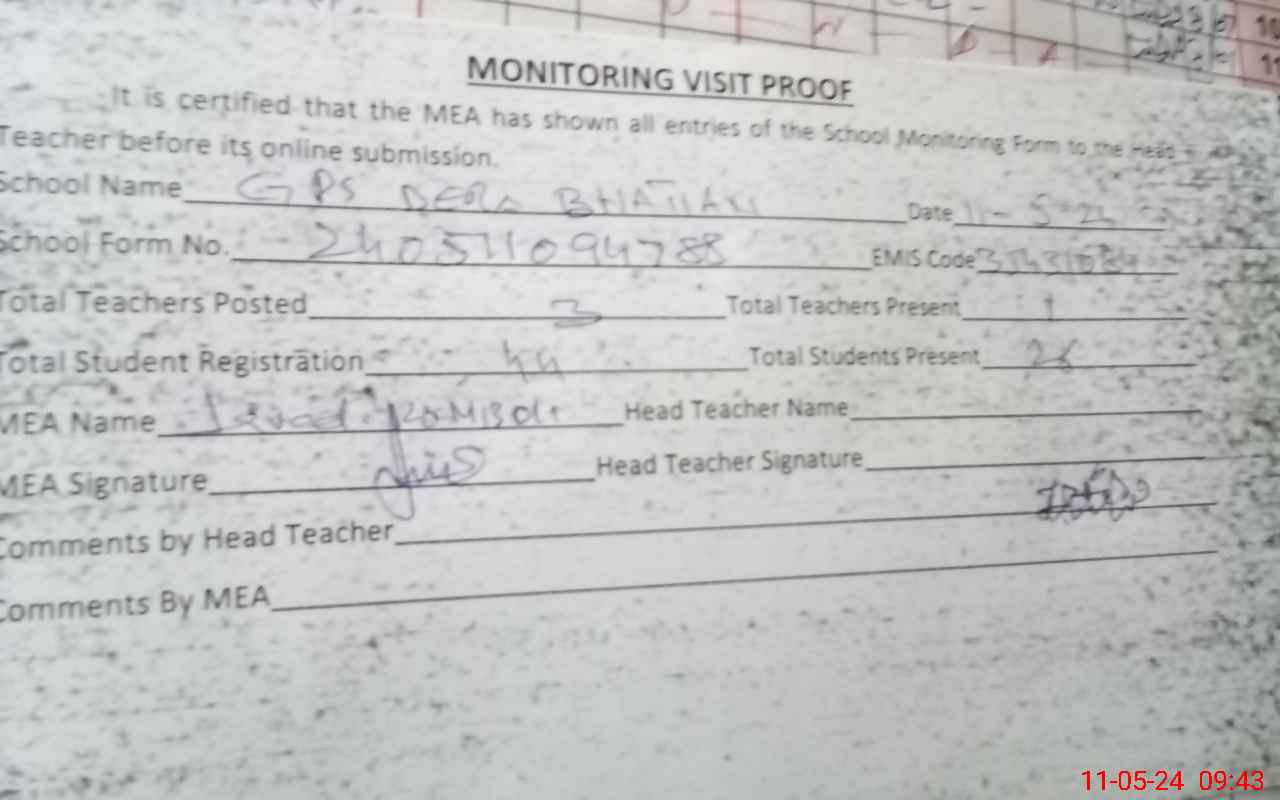 MONITORING VISIT PROOF
It is certified that the MEA has shown all entries of the School Monitoring Form to the Head
Teacher before its online submission.
School Name GPS DERA BHATIAN Date 11-5-24
School Form No. 240511094788 EMIS Code
Total Teachers Posted 3 Total Teachers Present 1
Total Student Registration 44 Total Students Present 26
MEA Name Head Teacher Name
MEA Signature Head Teacher Signature
Comments by Head Teacher
Comments By MEA
11-05-24 09:43